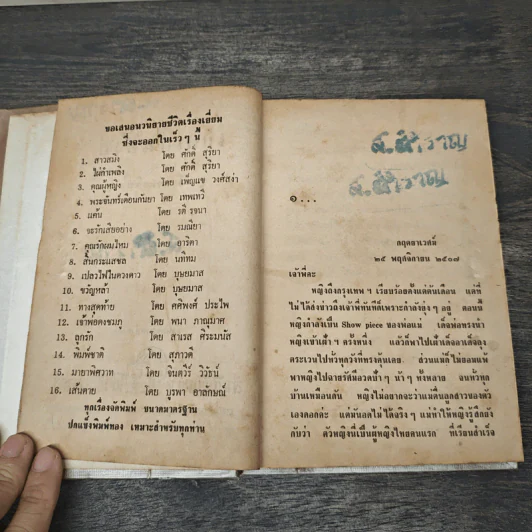 ขอเสนอนวนิยายชีวิตเรื่องเยี่ยม
ซึ่งจะออกในเร็ว ๆ นี้
1. สาวสมิง โดย ศักดิ์ สุริยา
2. ไม่ถ้าเพลิง โดย ศักดิ์ สุริยา
3. คุณผู้หญิง โดย เพ็ญแข วงศ์สง่า
4. พระจันทร์เดือนกันยา โดย เทพเทวี
5. แค้น โดย รตี รุจนา
6. จะรักเสียอย่าง โดย รมณียา
7. คุณรักผมไหม โดย อาริตา
8. สิ้นกระแสชล โดย นทิทม
9. เปลวไฟในดวงดาว โดย บุษยมาส
10. ขวัญหล้า โดย บุษยมาส
11. ทางสุดท้าย โดย ศศิพงศ์ ประไพ
12. เจ้าพ่อคงชมภู โดย พนา ภาณุมาศ
13. ลูกรัก โดย สาเรส ศิระมนัส
14. พิมพ์ชาติ โดย สุภาวดี
15. มายาพิศวาท โดย จินตวีร์ วิวัธน์
16. เส้นตาย โดย บูรพา อาลักษณ์
ทุกเรื่องจัดพิมพ์ ขนาดมาตรฐาน
ปกแข็งพิมพ์ทอง เหมาะสำหรับทุกท่าน
๑...
กฤดยาเวศม์
๒๕ พฤศจิกายน ๒๕๐๗
เจ้าพี่คะ
หญิงถึงกรุงเทพ ฯ เรียบร้อยตั้งแต่คืนเดือน แต่ที่
ไม่ได้ส่งข่าวถึงเจ้าพี่ทันทีก็เพราะกำลังยุ่ง ๆ อยู่ ตอนนี้
หญิงกำลังเป็น Show piece ของพ่อแม่ เด็จพ่อทรงนำ
หญิงเข้าเฝ้า ๆ ตรั้งหนึ่ง แล้วก็พาไปเฝ้าเด็จอาเด็จลุง
ตระเวนไปทั่วทุกวังที่ทรงคุ้นเคย ส่วนแม่ก็ไม่ยอมแพ้
พาหญิงไปฉายรัศมีอวดป้า ๆ น้า ๆ ทั้งหลาย จนทั่วทุก
บ้านเหมือนกัน หญิงไม่อยากจะว่าแม่ตื่นยกสาวของตัว
เองดอกค่ะ แต่มันอดไม่ได้จริงๆ แม่ทำให้หญิงรู้สึกยัง
กับว่า ตัวหญิงนี่เป็นผู้หญิงไทยคนแรก ที่เรียนสำเร็จ